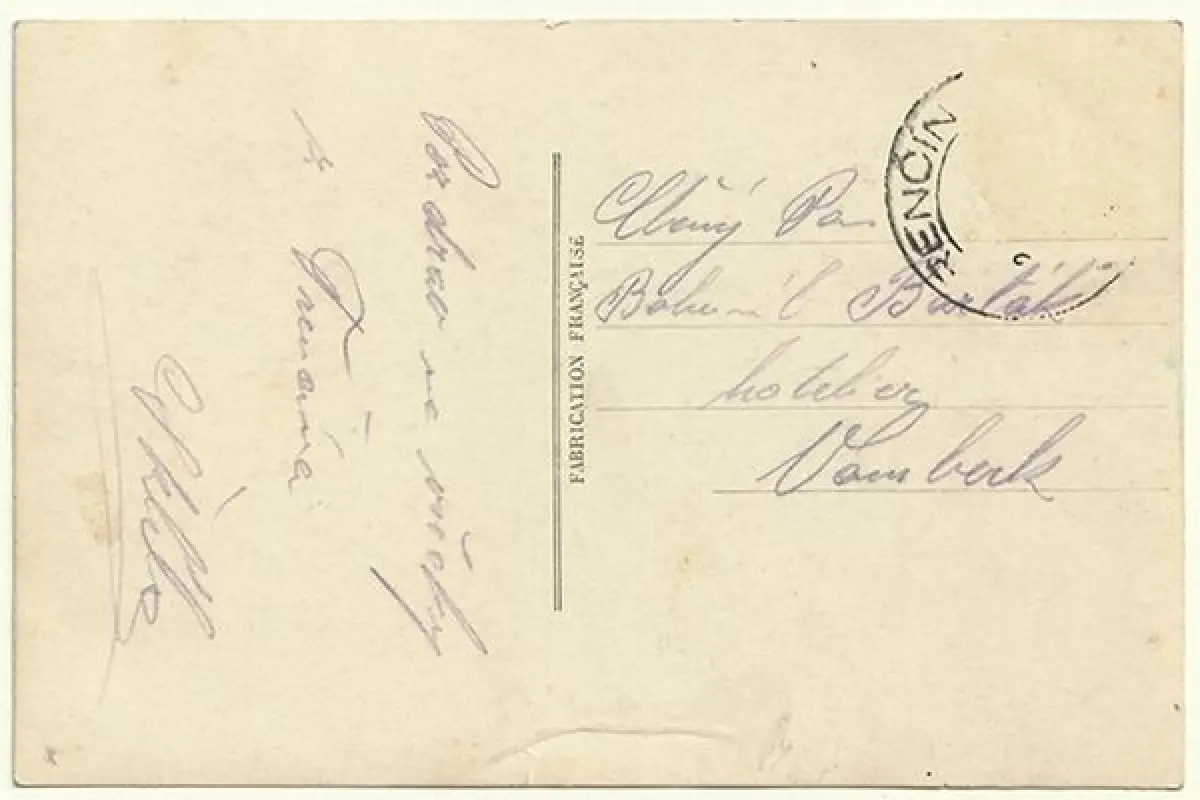 Pozdrav na všecky
z Trenčína
FABRICATION FRANÇAISE
RENČÍN
Ctěný Pan
Bohumil Barták
hotelier
Vamberk